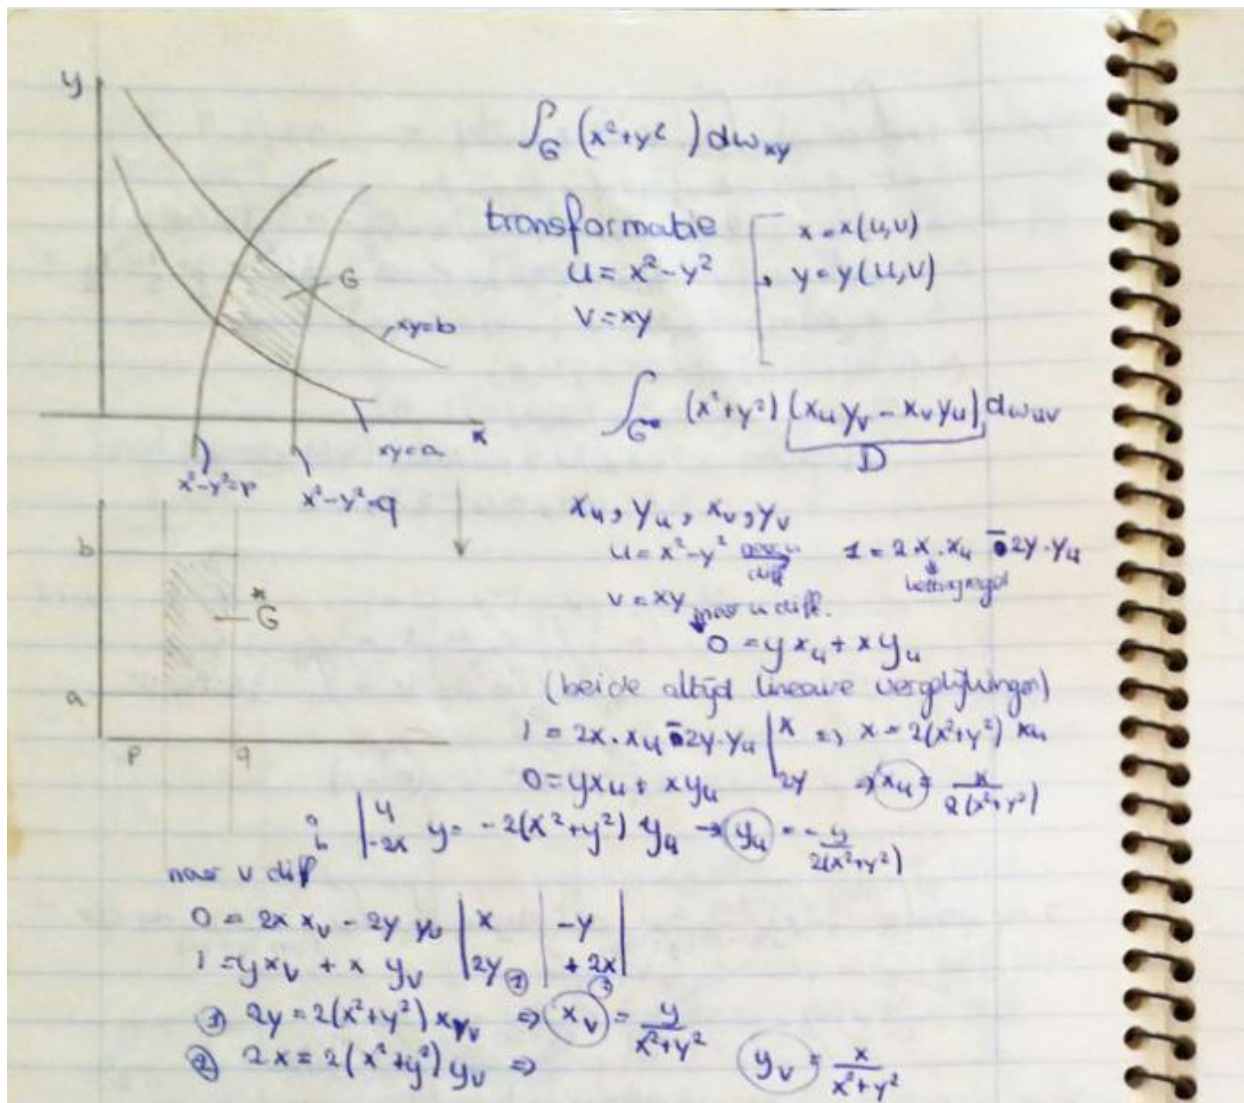 y
∫_G (x²+y²) dω_xy
transformatie
u = x²-y²
v = xy
x = x(u,v)
→ y = y(u,v)
G
xy=b
xy=a
x
x²-y²=p
x²-y²=q
∫_G* (x²+y²) (x_u y_v - x_v y_u) dω_uv
D
x_u, y_u, x_v, y_v
u = x²-y² naar u diff 1 = 2x·x_u - 2y·y_u
kettingregel
v = xy naar u diff.
0 = y x_u + x y_u
(beide altijd lineaire vergelijkingen)
b
G*
a
p q
1 = 2x·x_u - 2y·y_u | x ⇒ x = 2(x²+y²) x_u
0 = y x_u + x y_u | 2y ⇒ x_u = x/2(x²+y²)
| y
| -2x y = -2(x²+y²) y_u → y_u = -y/2(x²+y²)
naar v diff
0 = 2x x_v - 2y y_v | x | -y |
1 = y x_v + x y_v | 2y ① | +2x | ②
① 2y = 2(x²+y²) x_v ⇒ x_v = y/x²+y²
② 2x = 2(x²+y²) y_v ⇒ y_v = x/x²+y²